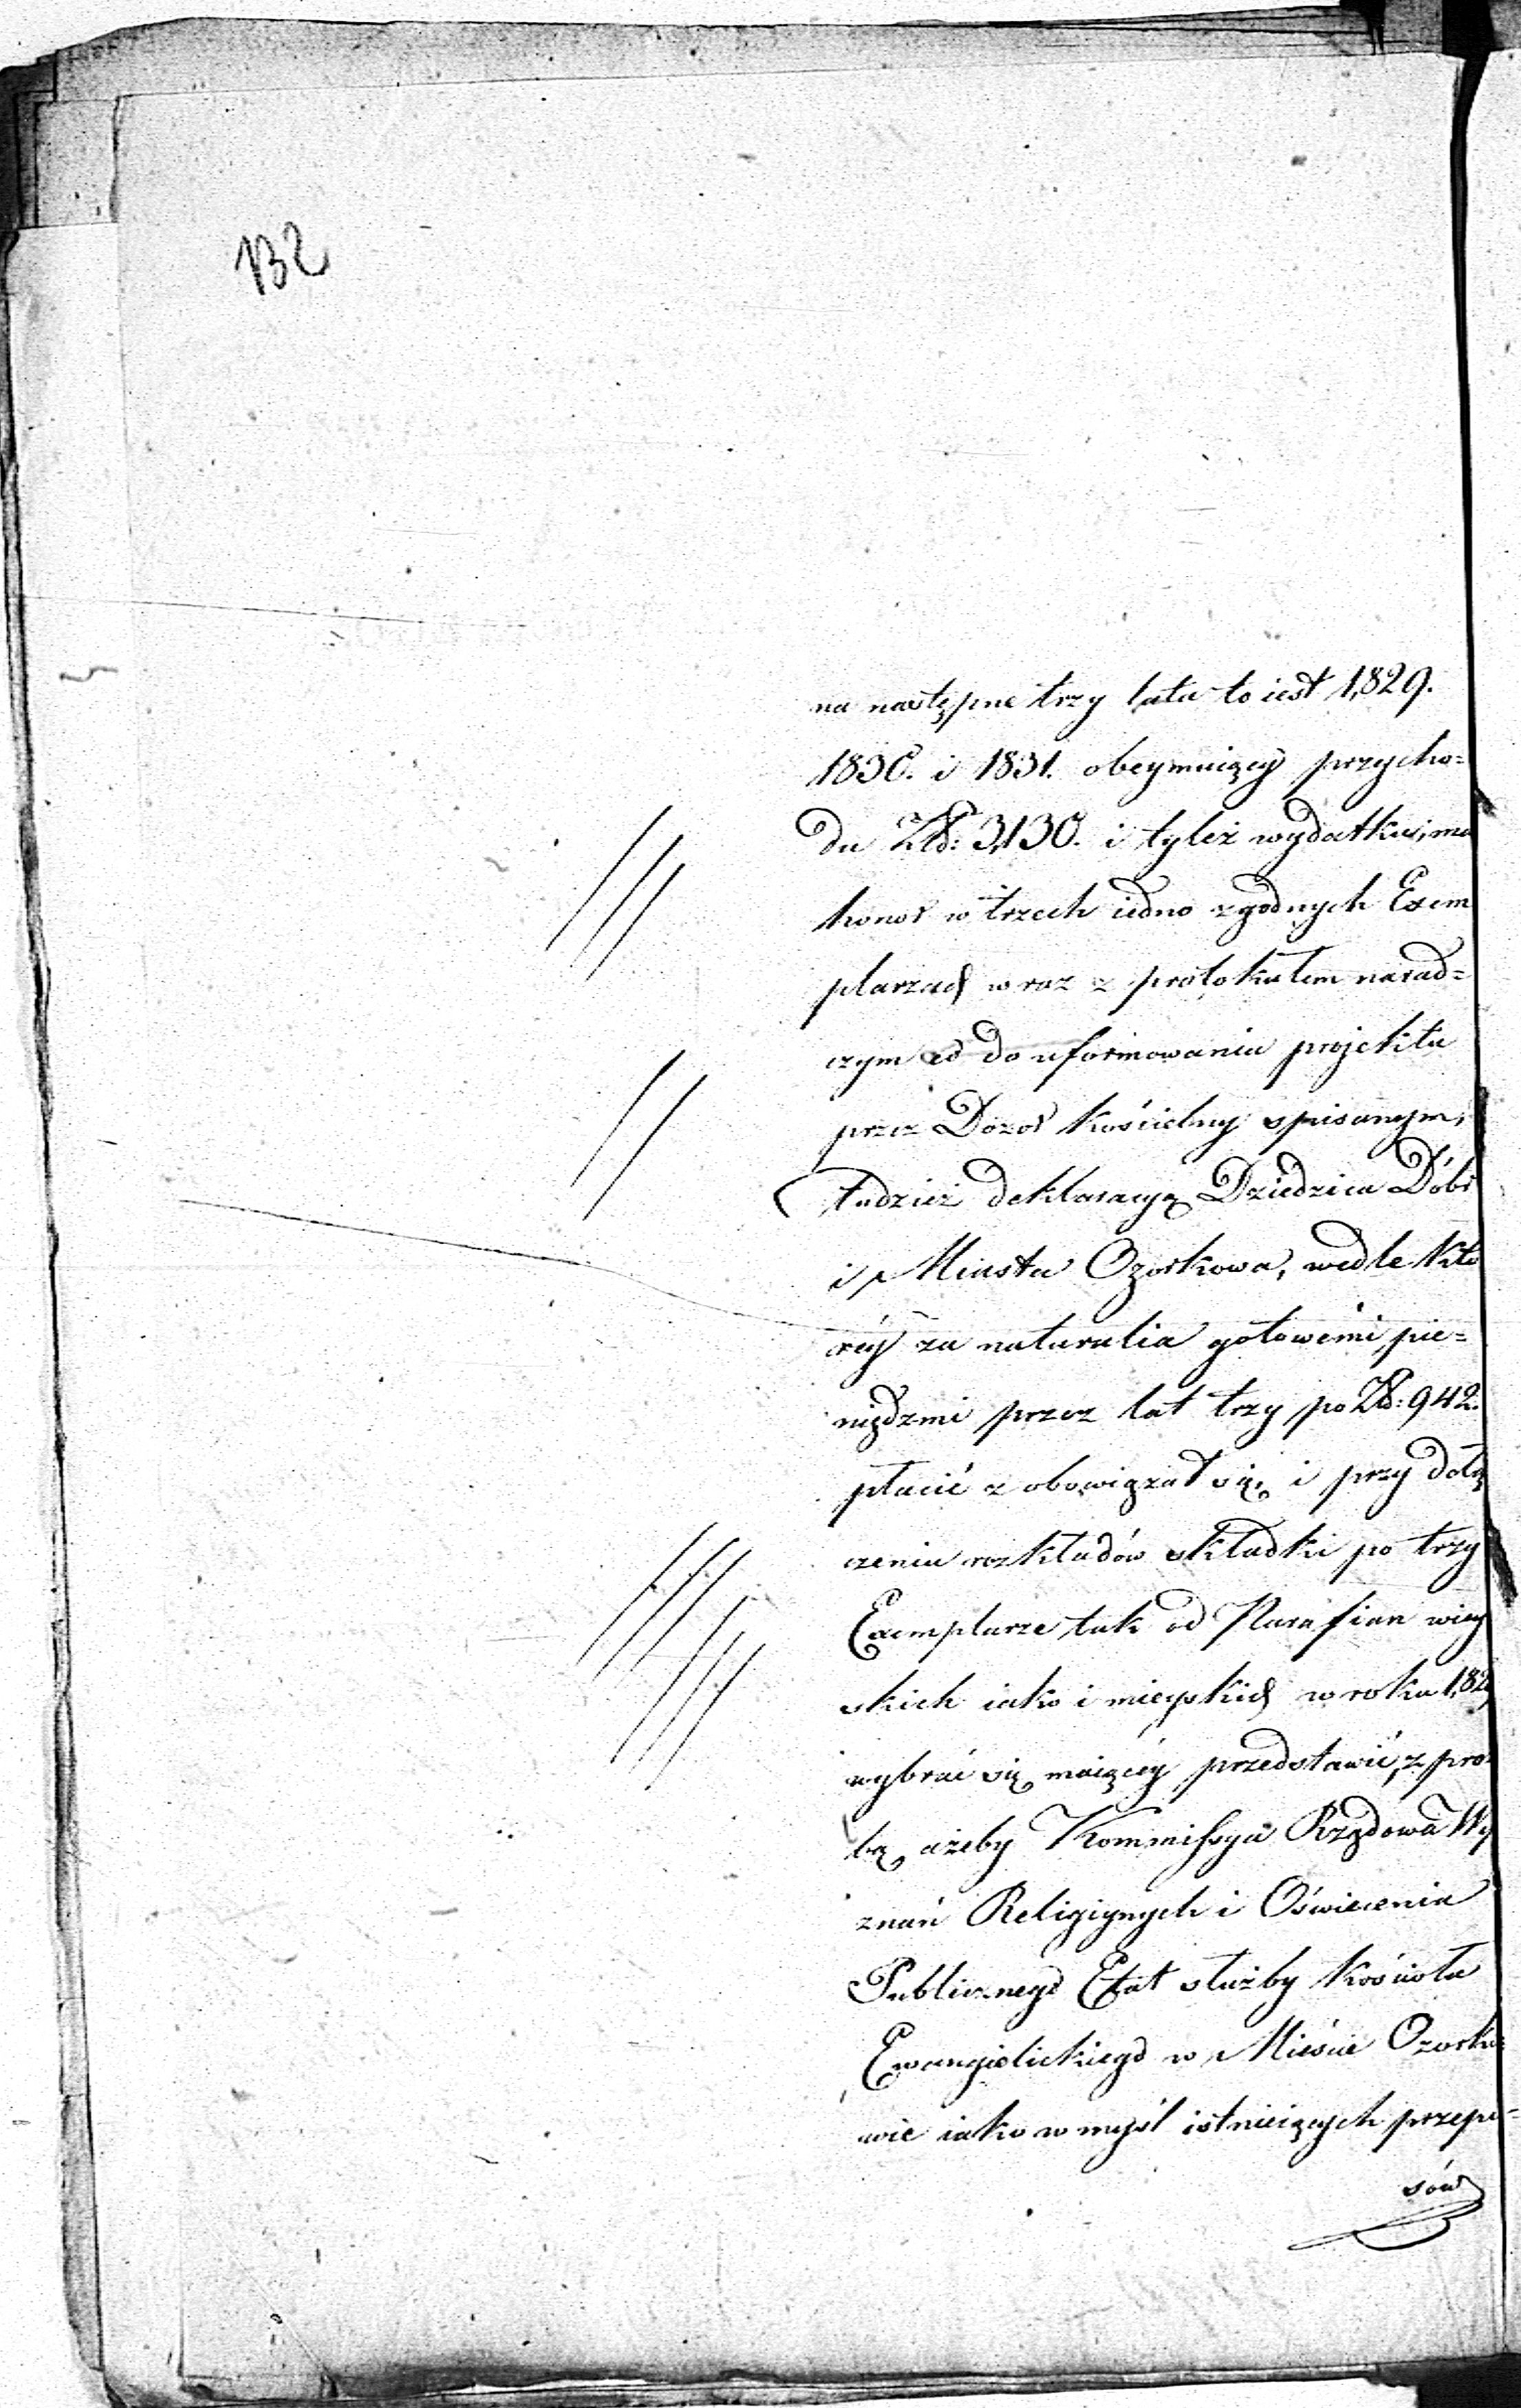 132
na następne trzy lata to iest 1,829.
1830. i 1831. obeymuiący przycho=
du Złd: 3,130. i tyleż wydatku, ma
honor w trzech iedno zgodnych Exem
plarzach wraz z protokułem narad=
czym co do uformowania projektu
przez Dozór kościelny spisanym,
tudzież deklaracyą Dziedzica Dóbr
i Miasta Ozorkowa, wedle któ
réy za naturalia gotowemi pie=
niędzmi przez lat trzy po Złd: 942.
płacić zobowiązał się, i przy dołą
czeniu rozkładów składki po trzy
Exemplarze tak od Parafian wiey
skich iako i mieyskich w roku 1,829
wybrać się maiącéy przedstawić, z proź
bą, ażeby Kommissya Rządowa Wy
znań Religiynych i Oświecenia
Publicznego Etat służby kościoła
Ewangielickiego w Mieście Ozorko=
wie iako w myśl istnieiących przepi=
sów